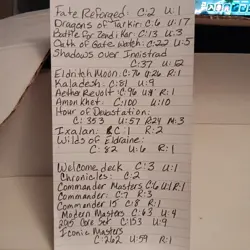 Fate Reforged: C:2 U:1
Dragons of Tarkir: C:6 U:17
Battle for Zendikar C:13 U:3
Oath of Gatewatch: C:22 U:5
Shadows over Innistrad
C:37 U:12
Eldritch Moon: C:76 U:26 R:1
Kaladesh: C:81 U:9
Aether Revolt: C:96 U:4 R:1
Amonkhet: C:100 U:10
Hour of Devastation:
C:353 U:57 R:24 M:3
Ixalan: C:1 R:2
Wilds of Eldraine:
C:82 U:6 R:1
Welcome deck C:3 U:1
Chronicles: C:2
Commander Masters C:6 U:1 R:1
Commander: C:7 R:3
Commander 15 C:8 R:1
Modern Masters C:63 U:4
2015 Core Set C:153 U:9
Iconic Masters
C:262 U:59 R:1